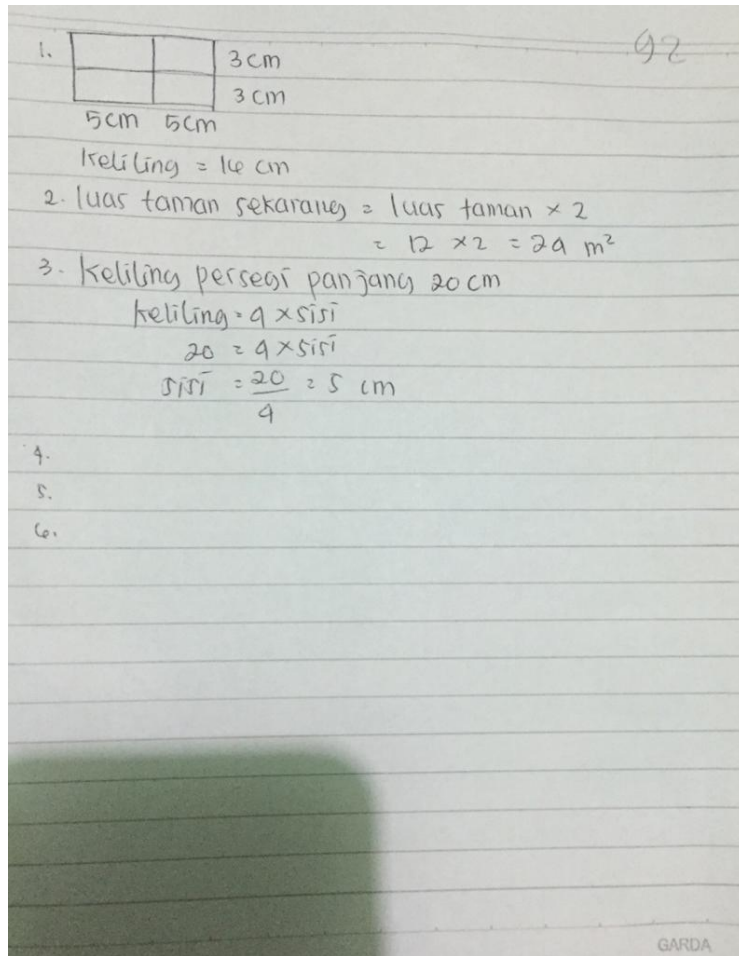 42
1. 3 cm
3 cm
5cm 5cm
Keliling = 16 cm
2. luas taman sekarang = luas taman × 2
= 12 × 2 = 24 m²
3. Keliling persegi panjang 20 cm
Keliling = 4 × sisi
20 = 4 × sisi
sisi = 20/4 = 5 cm
4.
5.
6.
GARDA